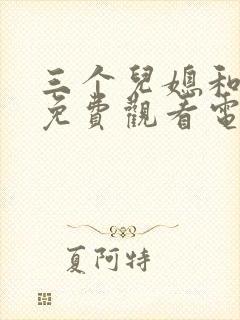 三个兒媳和
免費觀看電
夏阿特